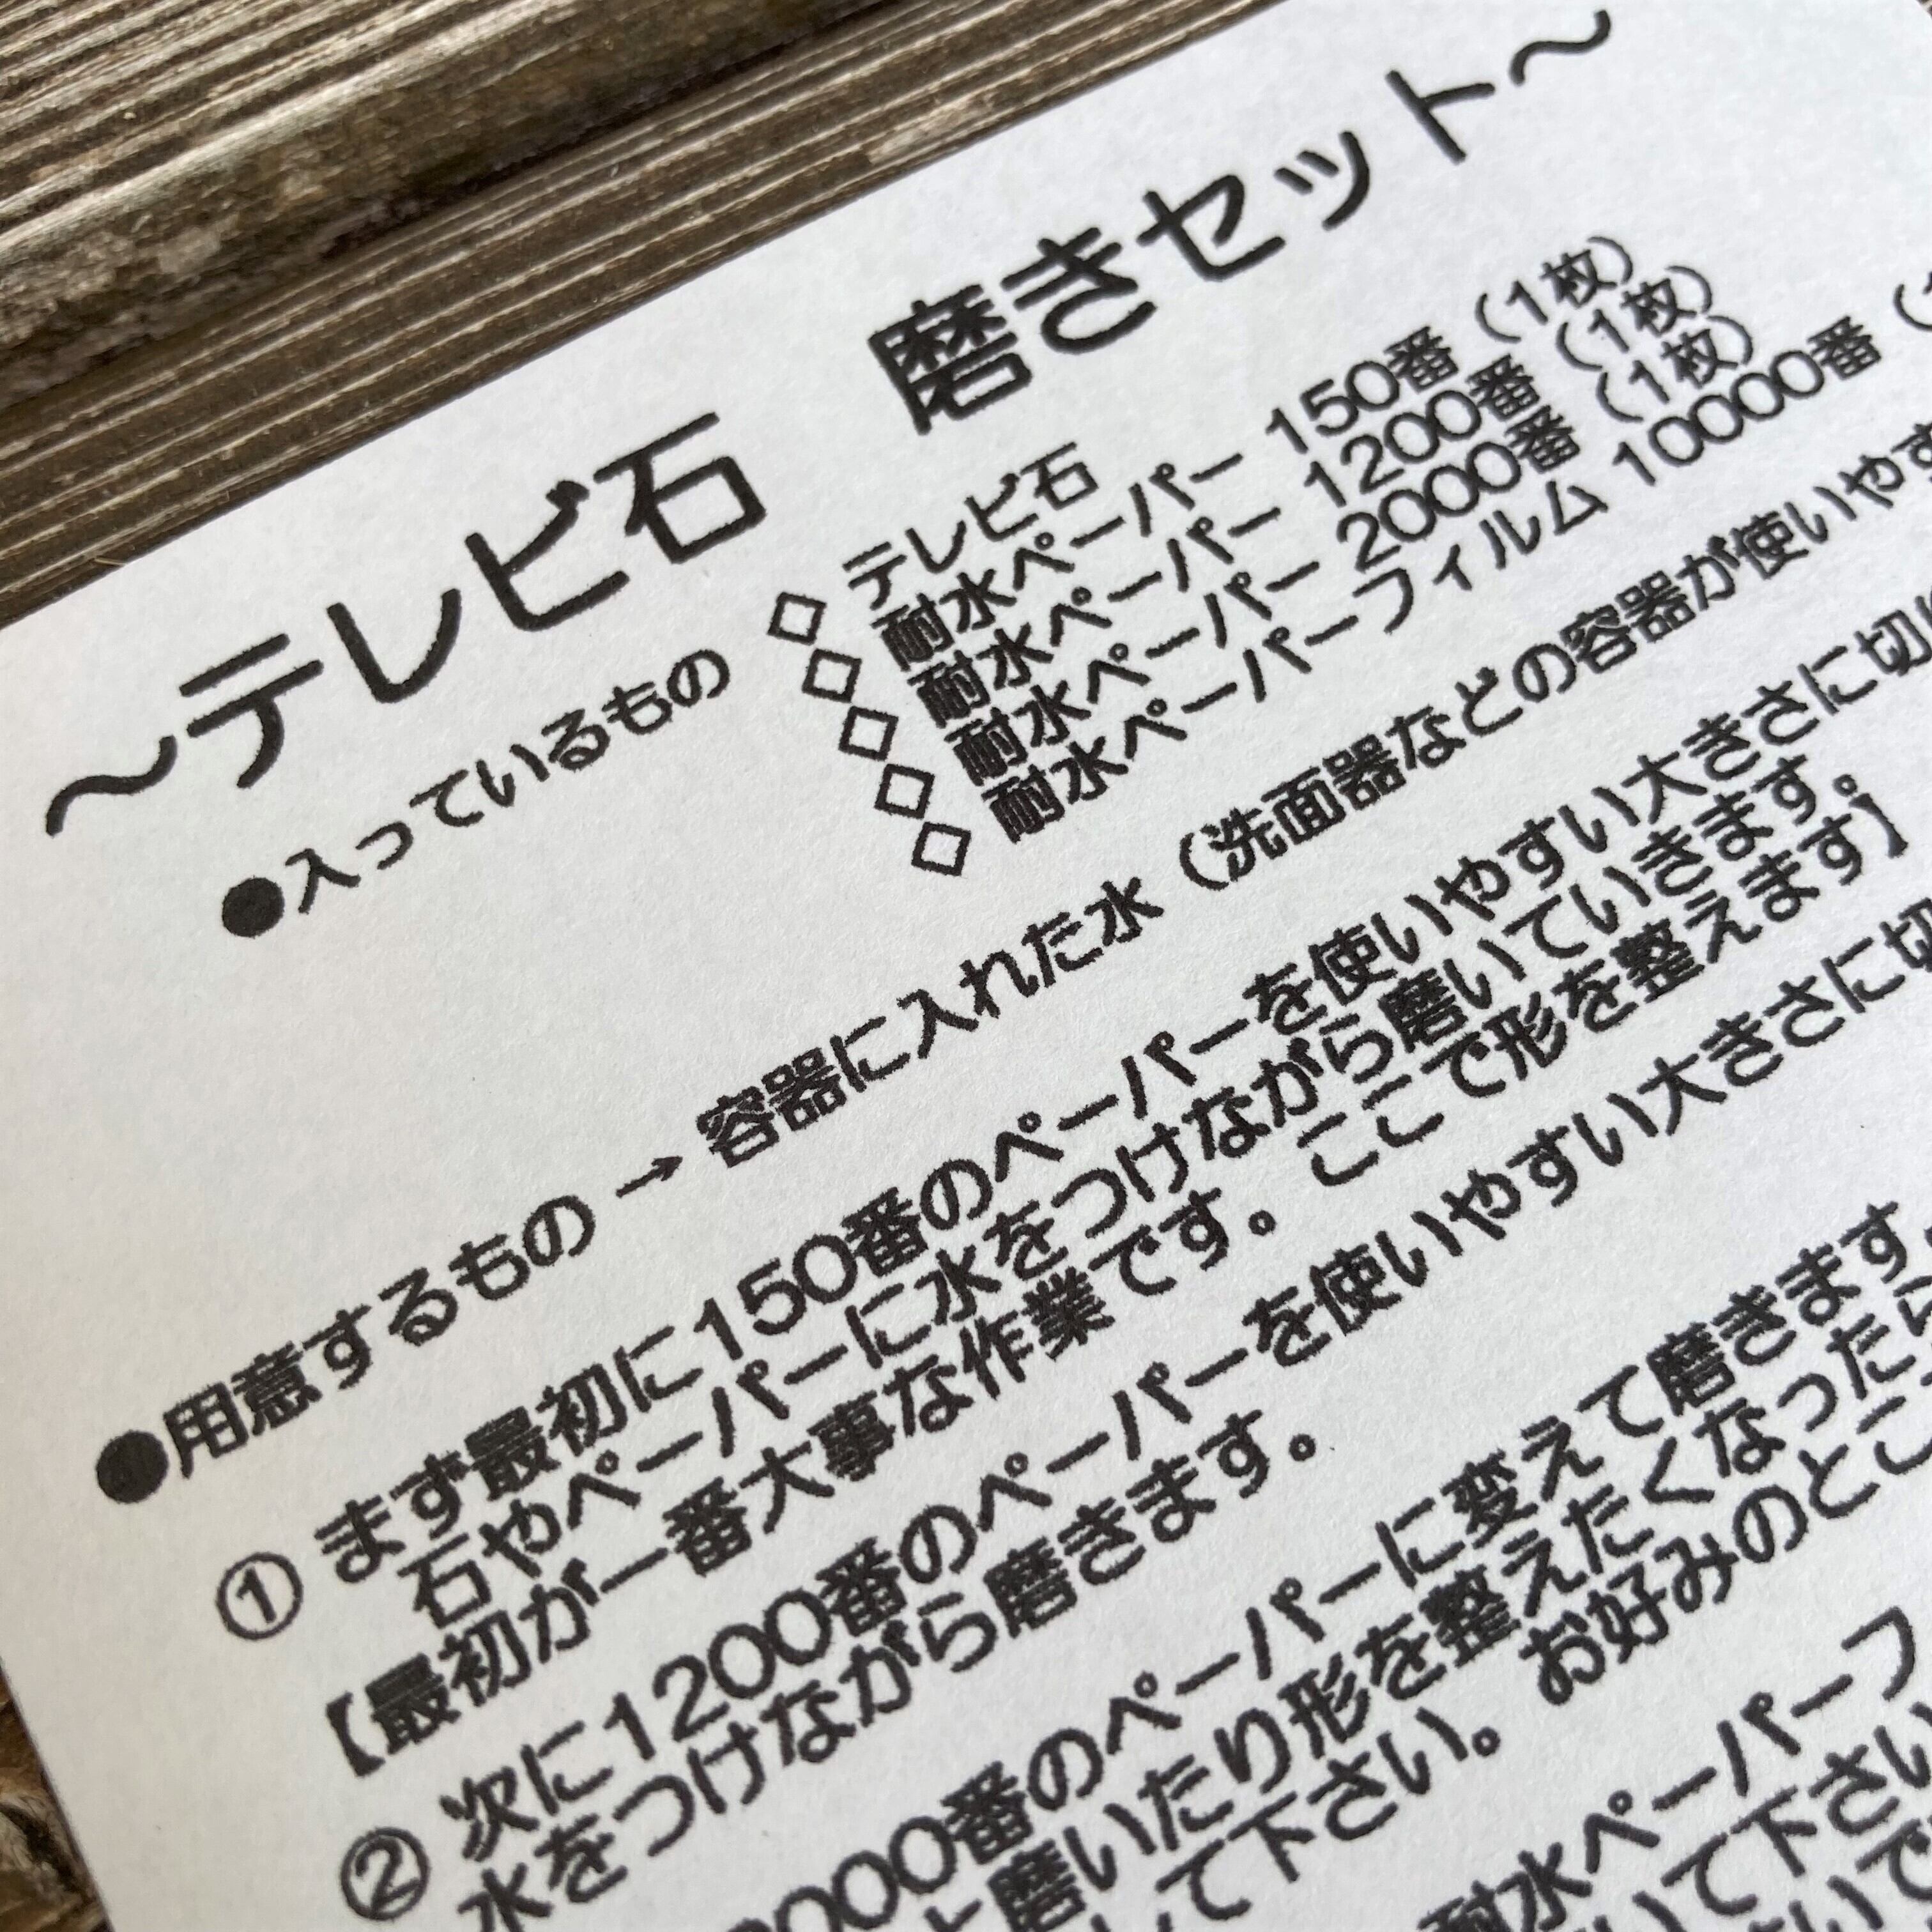 ～テレビ石　磨きセット～
●入っているもの
◇ テレビ石
◇ 耐水ペーパー 150番（1枚）
◇ 耐水ペーパー 1200番（1枚）
◇ 耐水ペーパー 2000番（1枚）
◇ 耐水ペーパーフィルム 10000番（
●用意するもの → 容器に入れた水（洗面器などの容器が使いやす
① まず最初に150番のペーパーを使いやすい大きさに切
石やペーパーに水をつけながら磨いていきます。
【最初が一番大事な作業です。ここで形を整えます】
② 次に1200番のペーパーを使いやすい大きさに切
水をつけながら磨きます。
000番のペーパーに変えて磨きます。
と磨いたり形を整えたくなったら
て下さい。お好みのとこ
耐水ペーパーフ
いて下さい